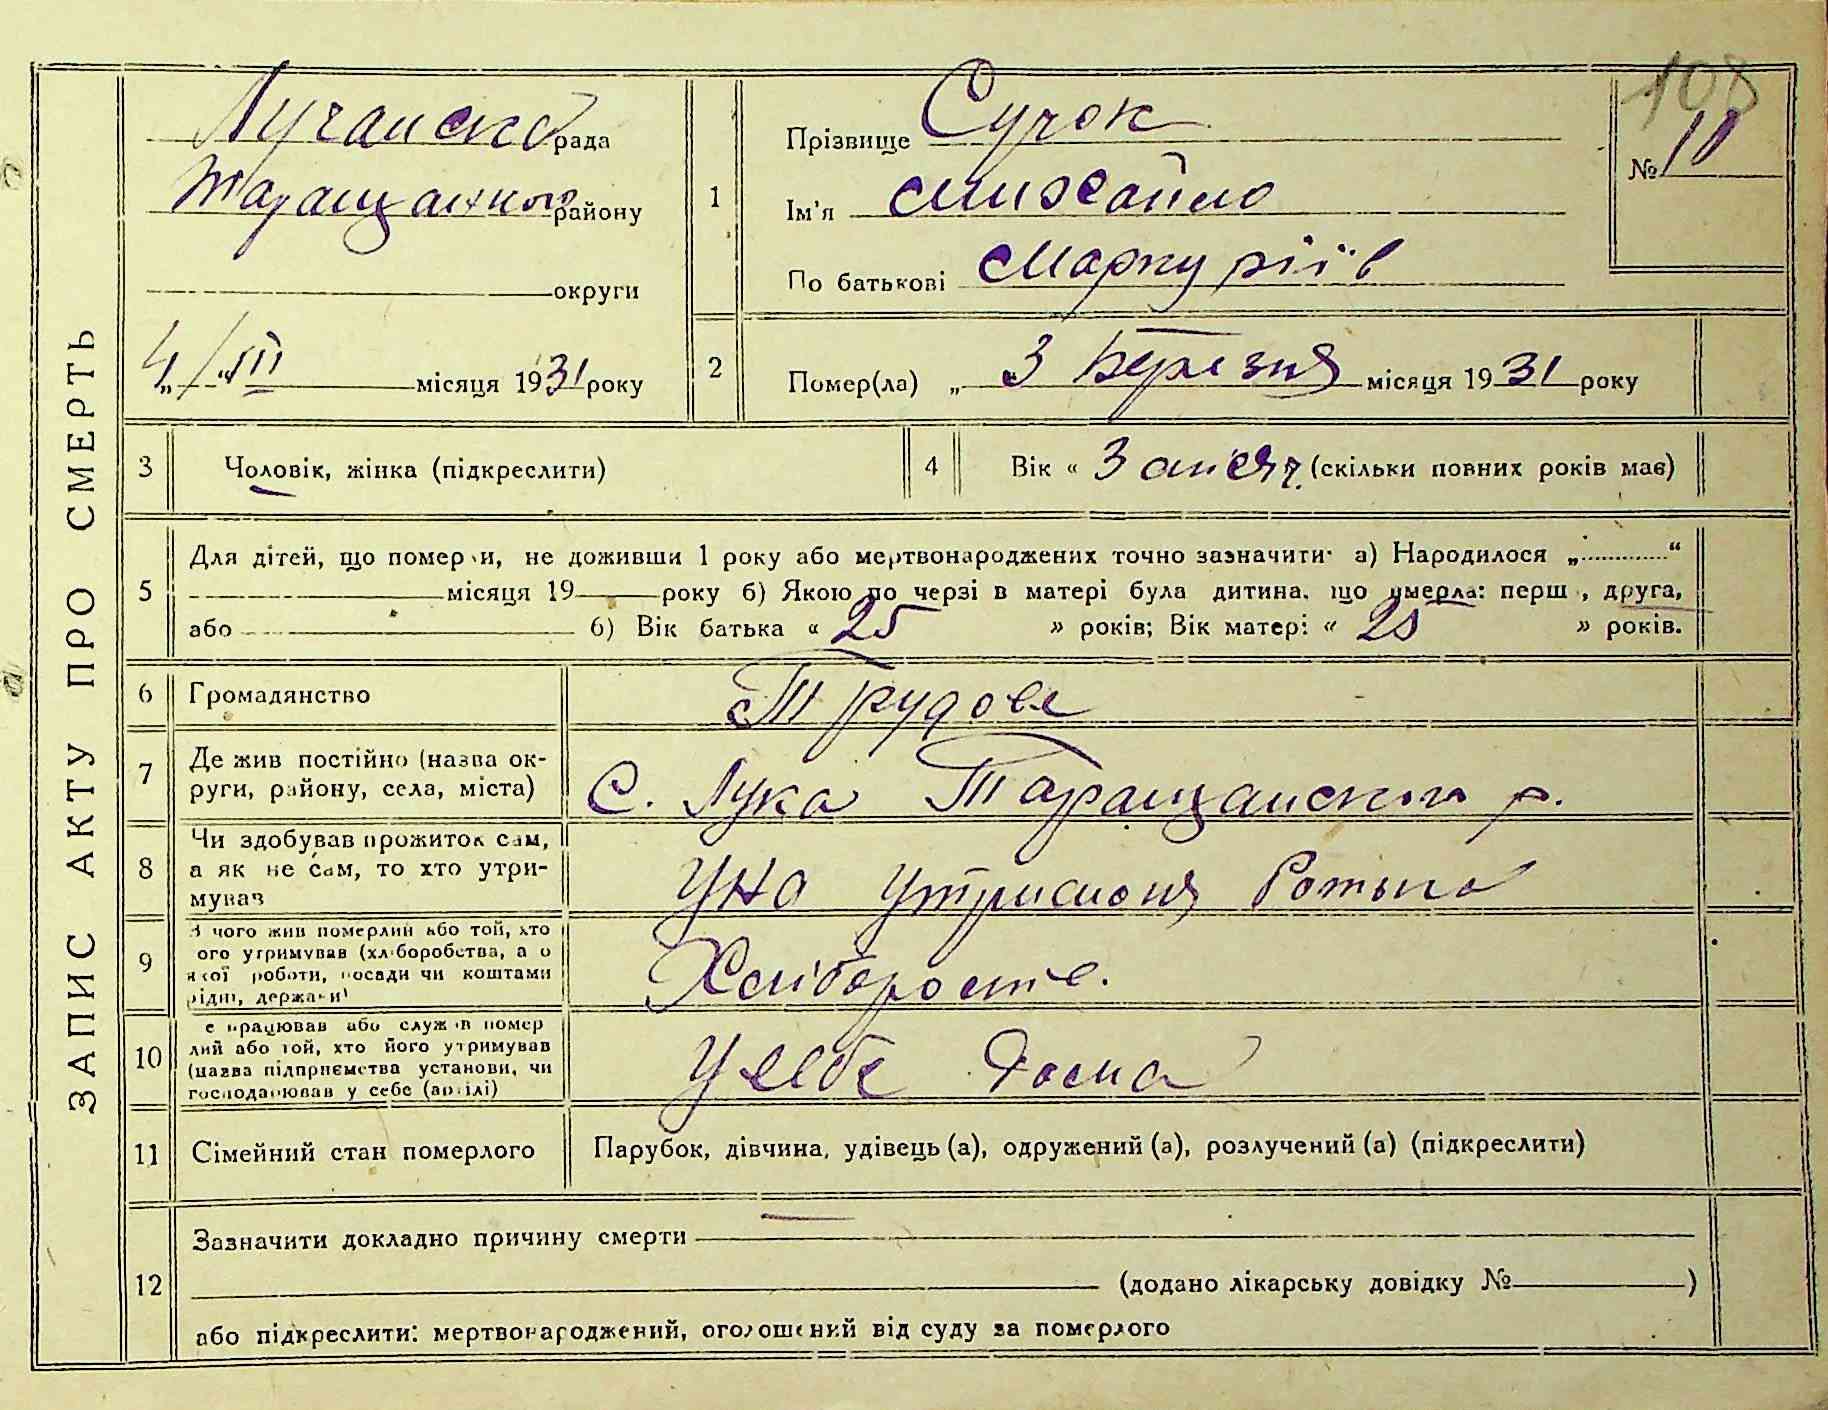 ЗАПИС АКТУ ПРО СМЕРТЬ
108
Лучанська рада
Таращанського району
округи
„4/III місяця 1931 року
1
Прізвище Сучок
Ім'я Михайло
По батькові Маркуріїв
№ 10
2
Помер(ла) „ 3 Березня місяця 1931 року
3
Чоловік, жінка (підкреслити)
4
Вік « 3 місяч. (скільки повних років має)
5
Для дітей, що померли, не доживши 1 року або мертвонароджених точно зазначити: а) Народилося „ “
місяця 19 року б) Якою по черзі в матері була дитина, що умерла: перш , друга,
або б) Вік батька « 25 » років; Вік матері « 25 » років.
6
Громадянство
Трудове
7
Де жив постійно (назва ок-
руги, району, села, міста)
С. Лука Таращанского р.
8
Чи здобував прожиток сам,
а як не сам, то хто утри-
мував
Уна утриманя Ротька
9
З чого жив померлий або той, хто
ого утримував (хліборобства, а о
якої роботи, посади чи коштами
рідні, держави)
Хлібороств.
10
е працював або служив помер
лий або той, хто його утримував
(назва підприємства установи, чи
господарював у себе (артілі)
У себе дома
11
Сімейний стан померлого
Парубок, дівчина, удівець (а), одружений (а), розлучений (а) (підкреслити)
12
Зазначити докладно причину смерти
(додано лікарську довідку № )
або підкреслити: мертвонароджений, оголошений від суду за померлого